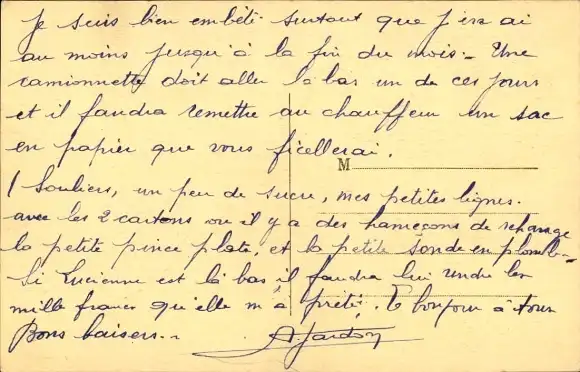 Je suis bien embêté surtout que j'en ai
au moins jusqu'à la fin du mois. Une
camionnette doit aller là bas un de ces jours
et il faudra remettre au chauffeur un sac
en papier que vous ficellerai.
M
1 Souliers, un peu de sucre, mes petites lignes.
avec les 2 cartons ou il y a des hameçons de rechange
la petite pince plate, et la petite sonde en plomb.
Si Lucienne est là bas il faudra lui rendre les
mille francs qu'elle m'a prêté. Le bonjour à tous
Bons baisers..
A. Jardon